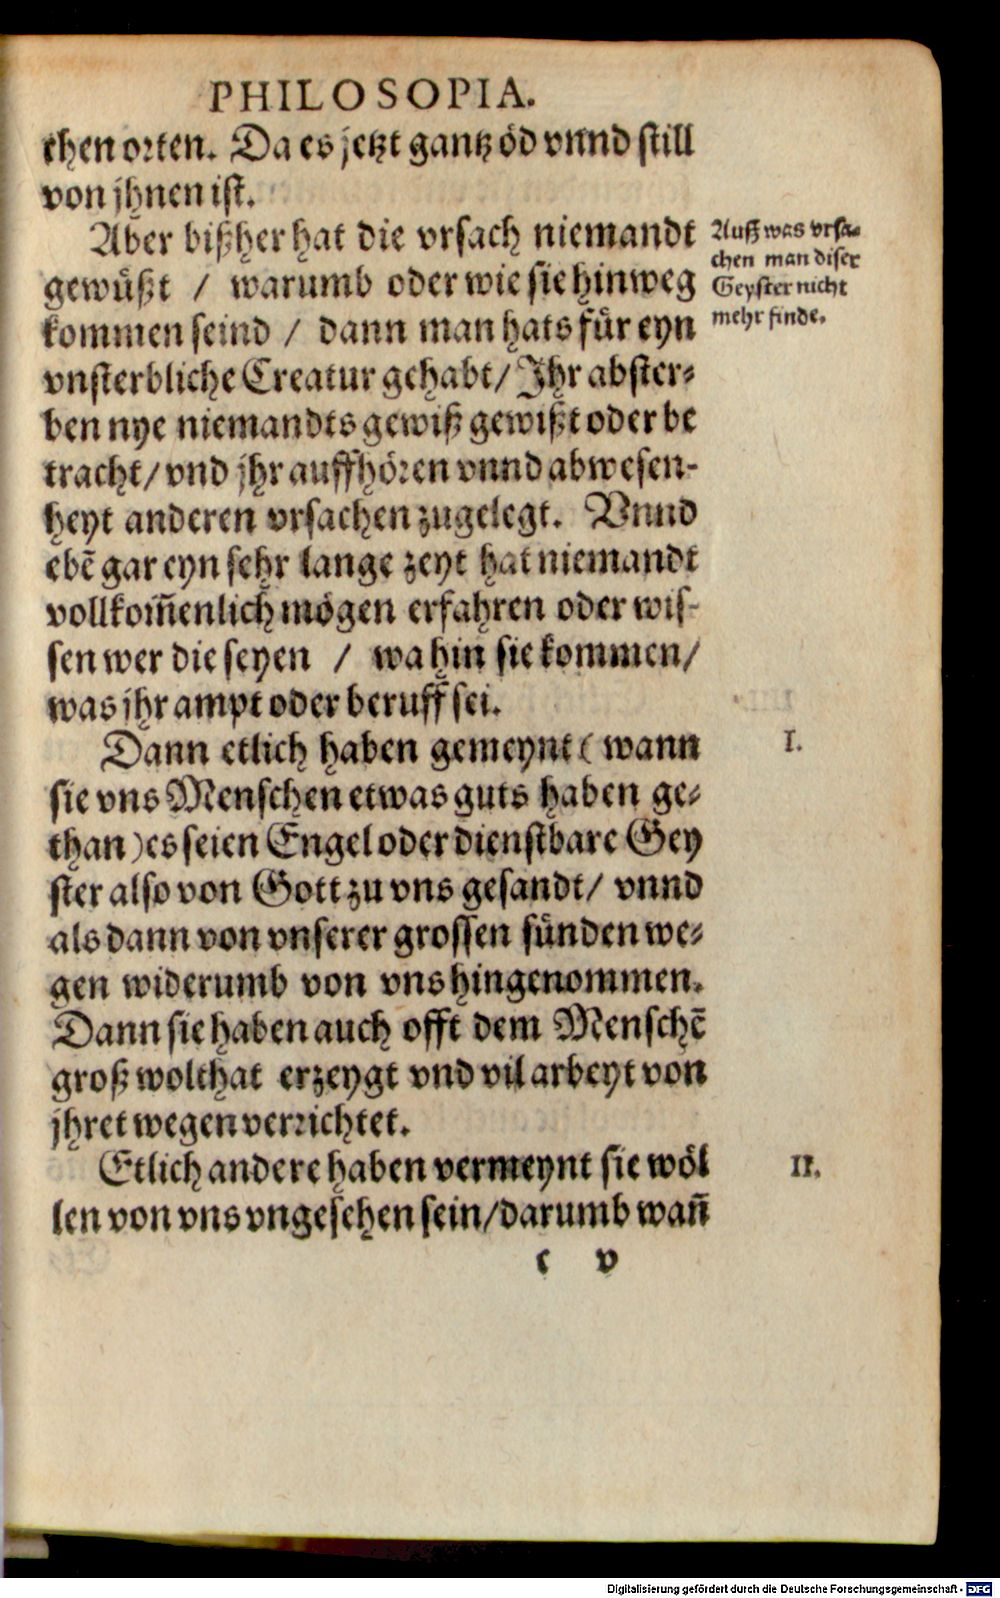 PHILOSOPIA.
chen orten. Da es jetzt gantz öd vnnd still
von jhnen ist.
Aber bißher hat die vrsach niemandt
gewüßt / warumb oder wie sie hinweg
kommen seind / dann man hats für eyn
vnsterbliche Creatur gehabt / Ihr abster-
ben nye niemandts gewiß gewißt oder be
tracht / vnd jhr auffhören vnnd abwesen-
heyt anderen vrsachen zugelegt. Vnnd
ebē gar eyn sehr lange zeyt hat niemandt
vollkom̄enlich mögen erfahren oder wis-
sen wer die seyen / wa hin sie kommen /
was jhr ampt oder beruff sei.
Dann etlich haben gemeynt ( wann
sie vns Menschen etwas guts haben ge-
than ) es seien Engel oder dienstbare Gey
ster also von Gott zu vns gesandt / vnnd
als dann von vnserer grossen sünden we-
gen widerumb von vns hingenommen.
Dann sie haben auch offt dem Menschē
groß wolthat erzeygt vnd vil arbeyt von
jhret wegen verrichtet.
Etlich andere haben vermeynt sie wöl
len von vns vngesehen sein / darumb wan̄
c v
Auß was vrsa-
chen man diser
Geyster nicht
mehr finde.
I.
II.
Digitalisierung gefördert durch die Deutsche Forschungsgemeinschaft - DFG